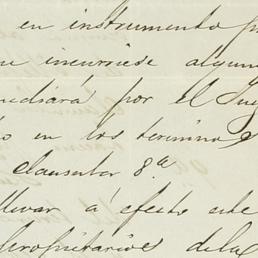 en instrumento p
incurriese algun
ediará por el Juz
en los terminos
clausular 8.a
llevar á efecto este
propietarios dela